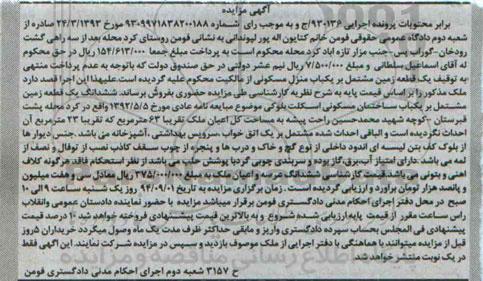 آگهی مزایده
برابر محتویات پرونده اجرایی ۹۳۰۱۳۶/ج و به موجب رای شماره ۹۳۰۹۹۷۱۸۳۸۲۰۰۱۸۸ مورخ ۱۳۹۳/۳/۲۴ صادره از
شعبه دوم دادگاه عمومی حقوقی فومن خانم کتایون اله پور لیوندانی به نشانی فومن روستای کرد محله بعد از سه راهی گشت
رودخان-گوراب پس-جنب مزار تازه اباد کرد محله محکوم است به پرداخت مبلغ جمعا ۱۵۴/۶۱۳/۰۰۰ ریال در حق محکوم
له آقای اسماعیل سلطانی و مبلغ ۷/۵۰۰/۰۰۰ ریال نیم عشر دولتی در حق صندوق دولت که باتوجه به عدم پرداخت منتهی
به توقیف یک قطعه زمین مشتمل بر یکباب منزل مسکونی از مالکیت محکوم علیه گردیده است علیهذا این اجرا قصد دارد
ملک مذکور را بر اساس قیمت پایه به شرح نظریه کارشناسی طی مزایده حضوری بفروش برساند. ششدانگ یک قطعه زمین
مشتمل بر یکباب ساختمان مسکونی اسکلت بلوکی موضوع مبایعه نامه عادی مورخ ۱۳۹۲/۵/۵ واقع در کرد محله پشت
قبرستان -کوچه شهید محمدحسین راحت پیشه به مساحت کل اعیان ملک تقریبا ۶۳ مترمربع که تقریبا ۲۳ مترمربع آن
احداث نگردیده است و الباقی احداث شده مشتمل بر یک اتق خواب سرویس بهداشتی ، آشپزخانه می باشد. جنس دیوار ها
از بلوک کف بتن لیسه ای اندود داخلی از نوع گچ و خاک و درب ها و پنجره از چوب سقف کاذب نصب از توفال و نصف از
لمه می باشد .دارای امتیاز آب،برق،گاز بوده و سربندی چوبی گردبا پوشش حلب می باشد از نظر استحکام فاقد هرگونه کلاف
اهنی و بتونی می باشد قیمت کارشناسی ششدانگ عرصه و اعیان ملک به مبلغ ۳۷۵/۰۰۰/۰۰۰ ریال معادل سی و هفت میلیون
و پانصد هزار تومان براورد و ارزیابی گردیده است . زمان برگزاری مزایده به تاریخ ۹۴/۰۹/۰۱ روز یک شنبه ساعت ۹ الی ۱۰
صبح در محل دفتر اجرای احکام مدنی دادگستری فومن برقرار میباشد مزایده با حضور نماینده دادستان عمومی وانقلاب
راس ساعت مقرر از قیمت پایه ارزیابی شده شروع و به بالاترین قیمت پیشنهادی فروخته خواهد شد. ۱۰ درصد قیمت
پیشنهادی فی المجلس بحساب سپرده دادگستری واریز و مابقی حداکثر ظرف مدت یک ماه وصول میگردد خریداران ۵روز
قبل از مزایده میتوانند با هماهنگی با دفتر اجرایی از ملک موصوف بازدید و سپس در مزایده شرکت نمایند. این آگهی فقط
در یک نوبت منتشر خواهد شد.
ح ۳۱۵۷ شعبه دوم اجرای احکام مدنی دادگستری فومن